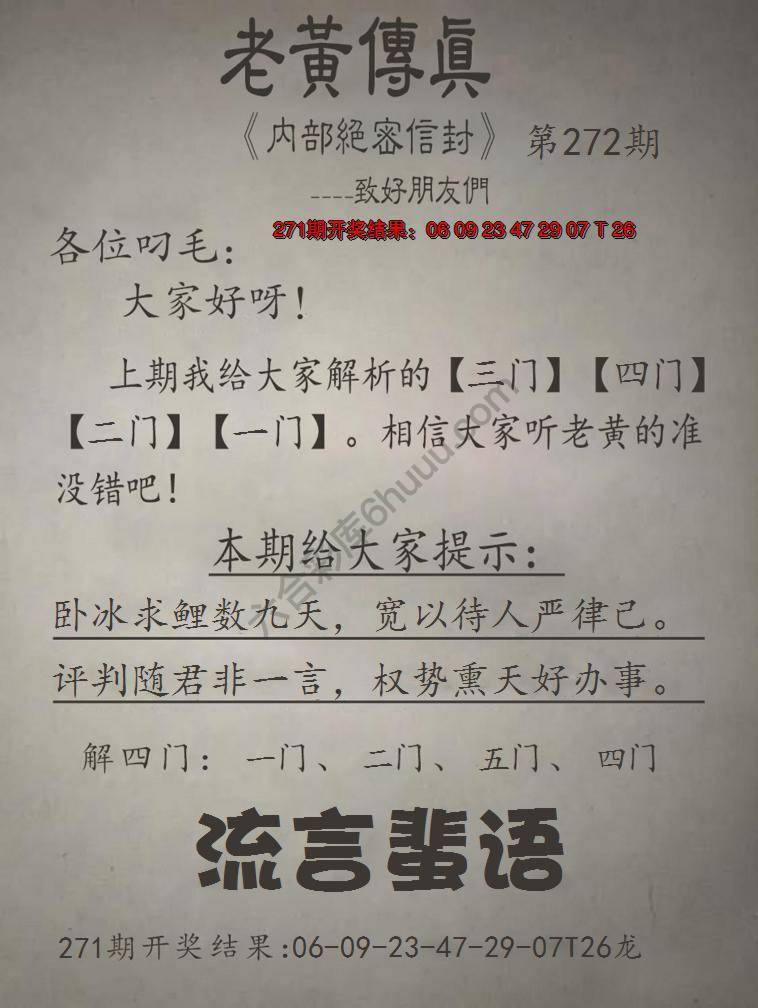 老黃傳眞
《内部絕密信封》 第272期
----致好朋友們
271期开奖结果：06 09 23 47 29 07 T 26
各位叼毛：
大家好呀！
上期我给大家解析的【三门】【四门】
【二门】【一门】。相信大家听老黄的准
没错吧！
六合彩库6huuu.com
本期给大家提示：
卧冰求鲤数九天，宽以待人严律己。
评判随君非一言，权势熏天好办事。
解四门： 一门、二门、五门、四门
流言蜚语
271期开奖结果:06-09-23-47-29-07T26龙